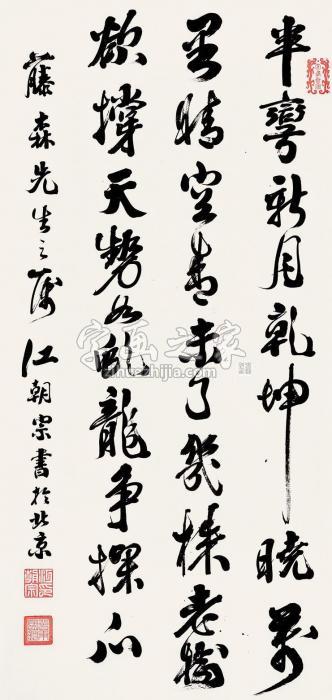 半彎新月乾坤曉萬
里晴空未了幾株老樹
欲撐天勢如亂龍爭探爪
藤森先生之屬 江朝宗書於北京
字画之家